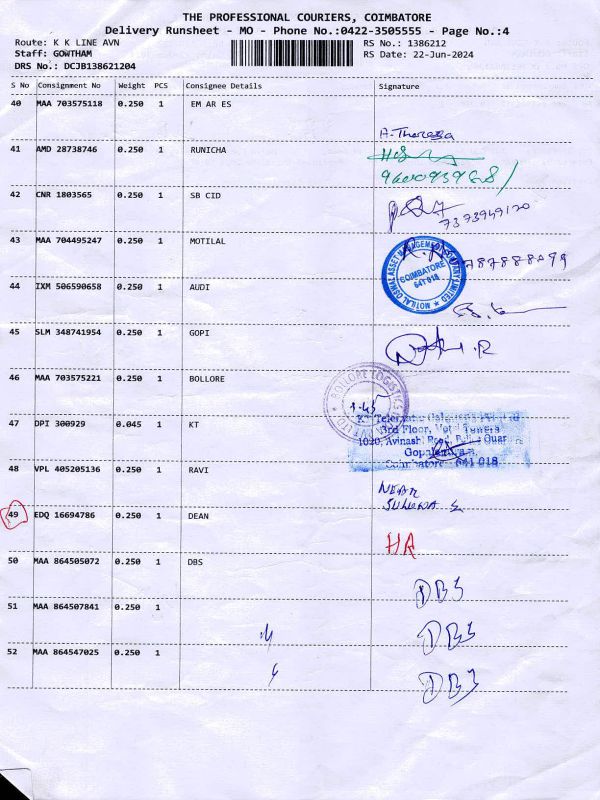 THE PROFESSIONAL COURIERS, COIMBATORE
Delivery Runsheet - MO - Phone No.:0422-3505555 - Page No.:4
Route: K K LINE AVN
RS No.: 1386212
Staff: GOWTHAM
RS Date: 22-Jun-2024
DRS No.: DCJB138621204
S No Consignment No Weight PCS Consignee Details Signature
40 MAA 703575118 0.250 1 EM AR ES
A. Theressa
41 AMD 28738746 0.250 1 RUNICHA
42 CNR 1803565 0.250 1 SB CID
7373949120
43 MAA 704495247 0.250 1 MOTILAL
MOTILAL OSWAL ASSET MANAGEMENT COMPANY LIMITED
COIMBATORE
641 018
44 IXM 506590658 0.250 1 AUDI
45 SLM 348741954 0.250 1 GOPI
46 MAA 703575221 0.250 1 BOLLORE
BOLLORE LOGISTICS PVT LTD
1.45
47 DPI 300929 0.045 1 KT
3rd Floor, Towers
1020, Avinashi Road,
Gopalapuram,
Coimbatore - 641 018
48 VPL 405205136 0.250 1 RAVI
NEAR
49 EDQ 16694786 0.250 1 DEAN
HA
50 MAA 864505072 0.250 1 DBS
DBS
51 MAA 864507841 0.250 1
〃
DBS
52 MAA 864547025 0.250 1
DBS